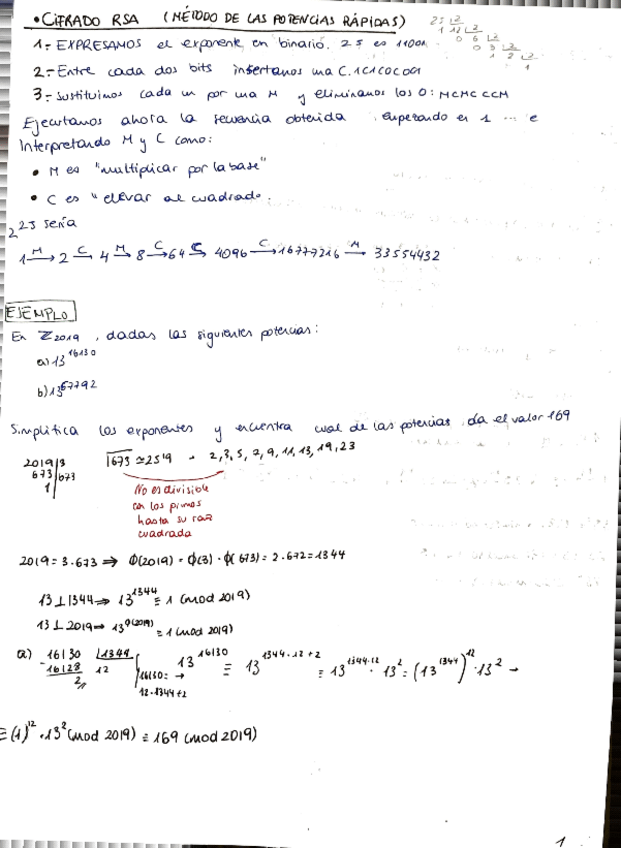 • CIFRADO RSA (MÉTODO DE LAS POTENCIAS RÁPIDAS)
1- EXPRESAMOS el exponente en binario. 25 es 11001
2- Entre cada dos bits insertamos una C. 1C1C0C0C1
3- Sustituimos cada un por una M y eliminamos los 0: MCMCCCM
Ejecutamos ahora la secuencia obtenida empezando en 1 ... e
Interpretando M y C como:
• M es "multiplicar por la base"
• C es "elevar al cuadrado.
2^25 sería
1 —M→ 2 —C→ 4 —M→ 8 —C→ 64 —C→ 4096 —C→ 16777216 —M→ 33554432
EJEMPLO
En Z2019, dadas las siguientes potencias:
a) 13^16130
b) 13^67792
Simplifica los exponentes y encuentra cual de las potencias da el valor 169
2019 | 3
673 | 673
1
√1673 ≃ 25'9 · 2, 3, 5, 7, 9, 11, 13, 19, 23
No es divisible
con los primos
hasta su raíz
cuadrada
2019 = 3·673 ⇒ Φ(2019) = Φ(3)·Φ(673) = 2·672 = 1344
13 ⊥ 1344 ⇒ 13^1344 ≡ 1 (mod 2019)
13 ⊥ 2019 ⇒ 13^Φ(2019) ≡ 1 (mod 2019)
a) 16130 | 1344
-16128 12
2
16130 = → 12·1344+2
13^16130 ≡ 13^1344·12+2 ≡ 13^1344·12 · 13^2 = (13^1344)^12 · 13^2 →
≡ (1)^12 · 13^2 (mod 2019) ≡ 169 (mod 2019)
1